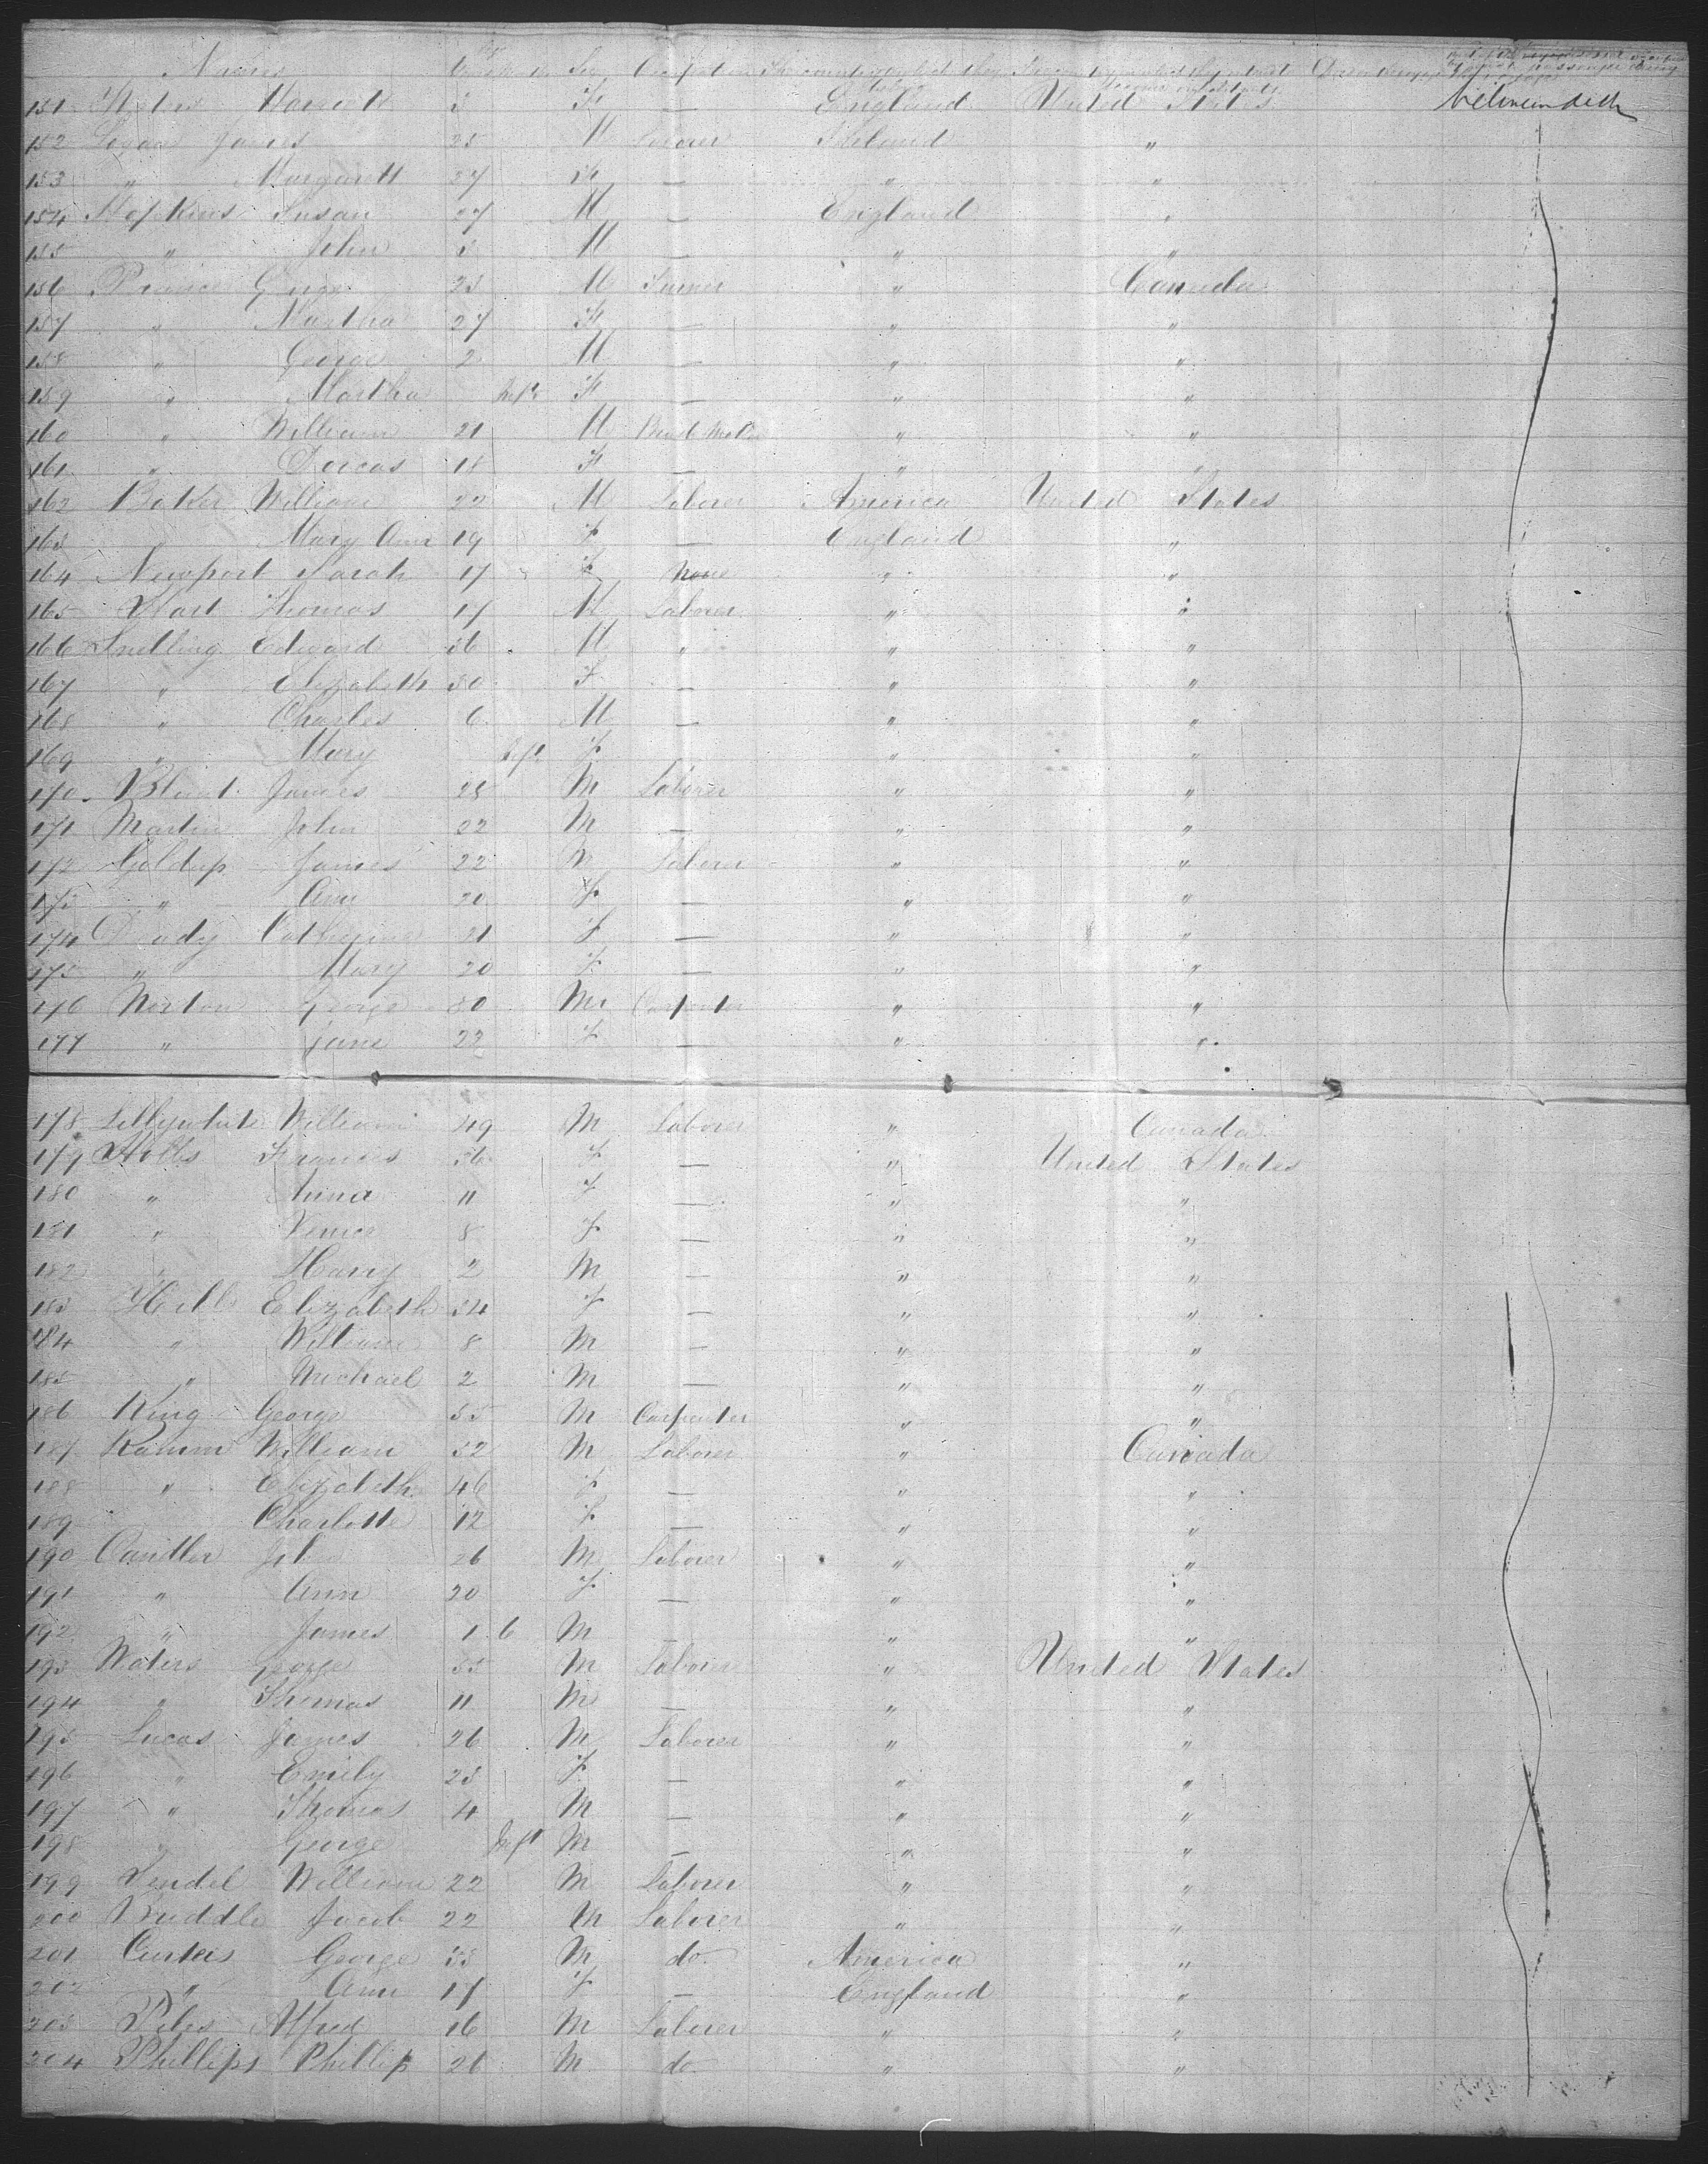 Names Sex Occupation United
151 Harriett 3 F — England United States between decks
152 Logan James 25 M Laborer Ireland "
153 " Margarett 27 F — " "
154 Hopkins Susan 27 M — England "
155 " John 3 M — " "
156 Prince George 23 M Farmer " Canada
157 " Martha 27 F — " "
158 " George 2 M — " "
159 " Martha Inft F — " "
160 " William 21 M " "
161 " Dorcas 18 F — " "
162 Baker William 22 M Laborer America United States
163 Mary Ann 19 F — England "
164 Newport Sarah 17 F None " "
165 Hart Thomas 17 M Laborer " "
166 Snelling Edward 36 M " " "
167 " Elizabeth 30 F — " "
168 " Charles 6 M — " "
169 " Mary Inft F " "
170 Blunt James 25 M Laborer " "
171 Martin John 22 M — " "
172 Goldup James 22 M Laborer " "
173 " Ann 20 F — " "
174 Deady Catherine 21 F — " "
175 " Mary 20 F — " "
176 Norton George 30 M Carpenter " "
177 " Jane 22 F — " "
178 William 49 M Laborer " Canada
179 Hobbs Frances 36 F — " United States
180 " Anna 11 F — " "
181 " 8 F — " "
182 " Harry 2 M — " "
183 Hills Elizabeth 34 F — " "
184 " William 8 M — " "
185 " Michael 2 M — " "
186 King George 35 M Carpenter " "
187 Ramm William 52 M Laborer " Canada
188 " Elizabeth 46 F — " "
189 Charlotte 12 F — " "
190 Cantler John 26 M Laborer " "
191 " Ann 20 F — " "
192 " James 1 6 M — " "
193 Waters George 35 M Laborer " United States
194 " Thomas 11 M — " "
195 Lucas James 26 M Laborer " "
196 " Emily 23 F — " "
197 " Thomas 4 M — " "
198 " George Inft M — " "
199 Lendel William 22 M Laborer " "
200 Buddle Jacob 22 M Laborer " "
201 Curteis George 35 M do America "
202 " Ann 17 F — England "
203 Piles Alfred 16 M Laborer " "
204 Phillips Phillip 26 M do " "